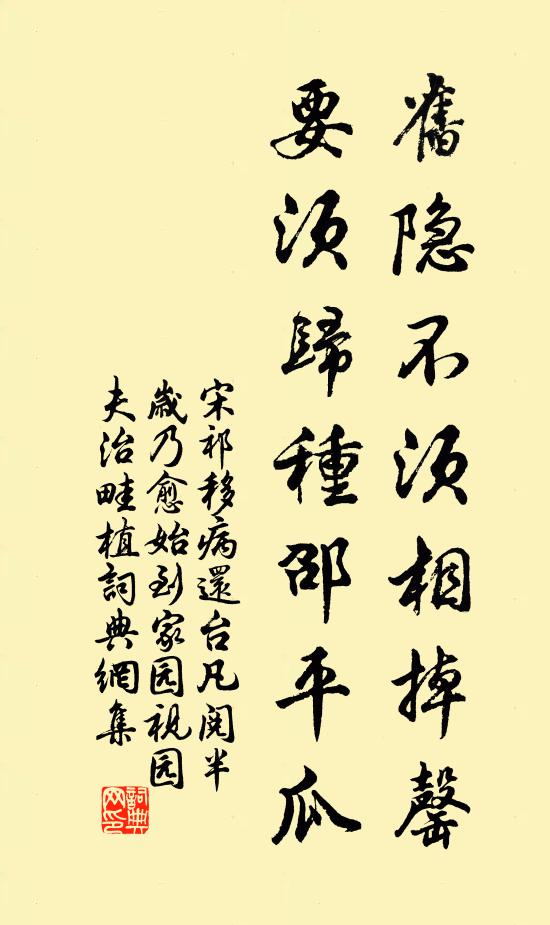 舊隐不須相掉罄
要須歸種邵平瓜
宋祁移病還台凡閱半
歲乃愈始到家园視园
夫治畦植詞典網集
詞典网印